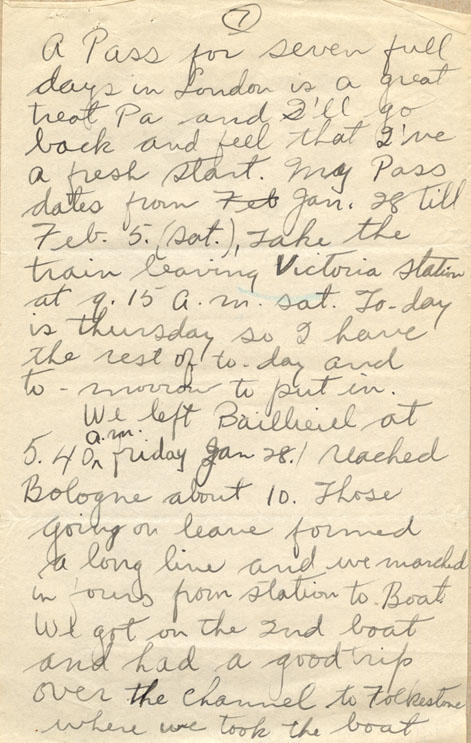 7
A Pass for seven full
days in London is a great
treat Pa and I'll go
back and feel that I've
a fresh start. My Pass
dates from Feb Jan. 28 till
Feb. 5. (Sat.), Take the
train leaving Victoria Station
at 9.15 A.m. Sat. To-day
is thursday so I have
the rest of to-day and
to-morrow to put in.
We left Baillieiel at
5.40 a.m. friday Jan 28. reached
Bologne about 10. Those
going on leave formed
a long line and we marched
in fours from station to Boat
We got on the 2nd boat
and had a good trip
over the channel to Folkestone
where we took the boat